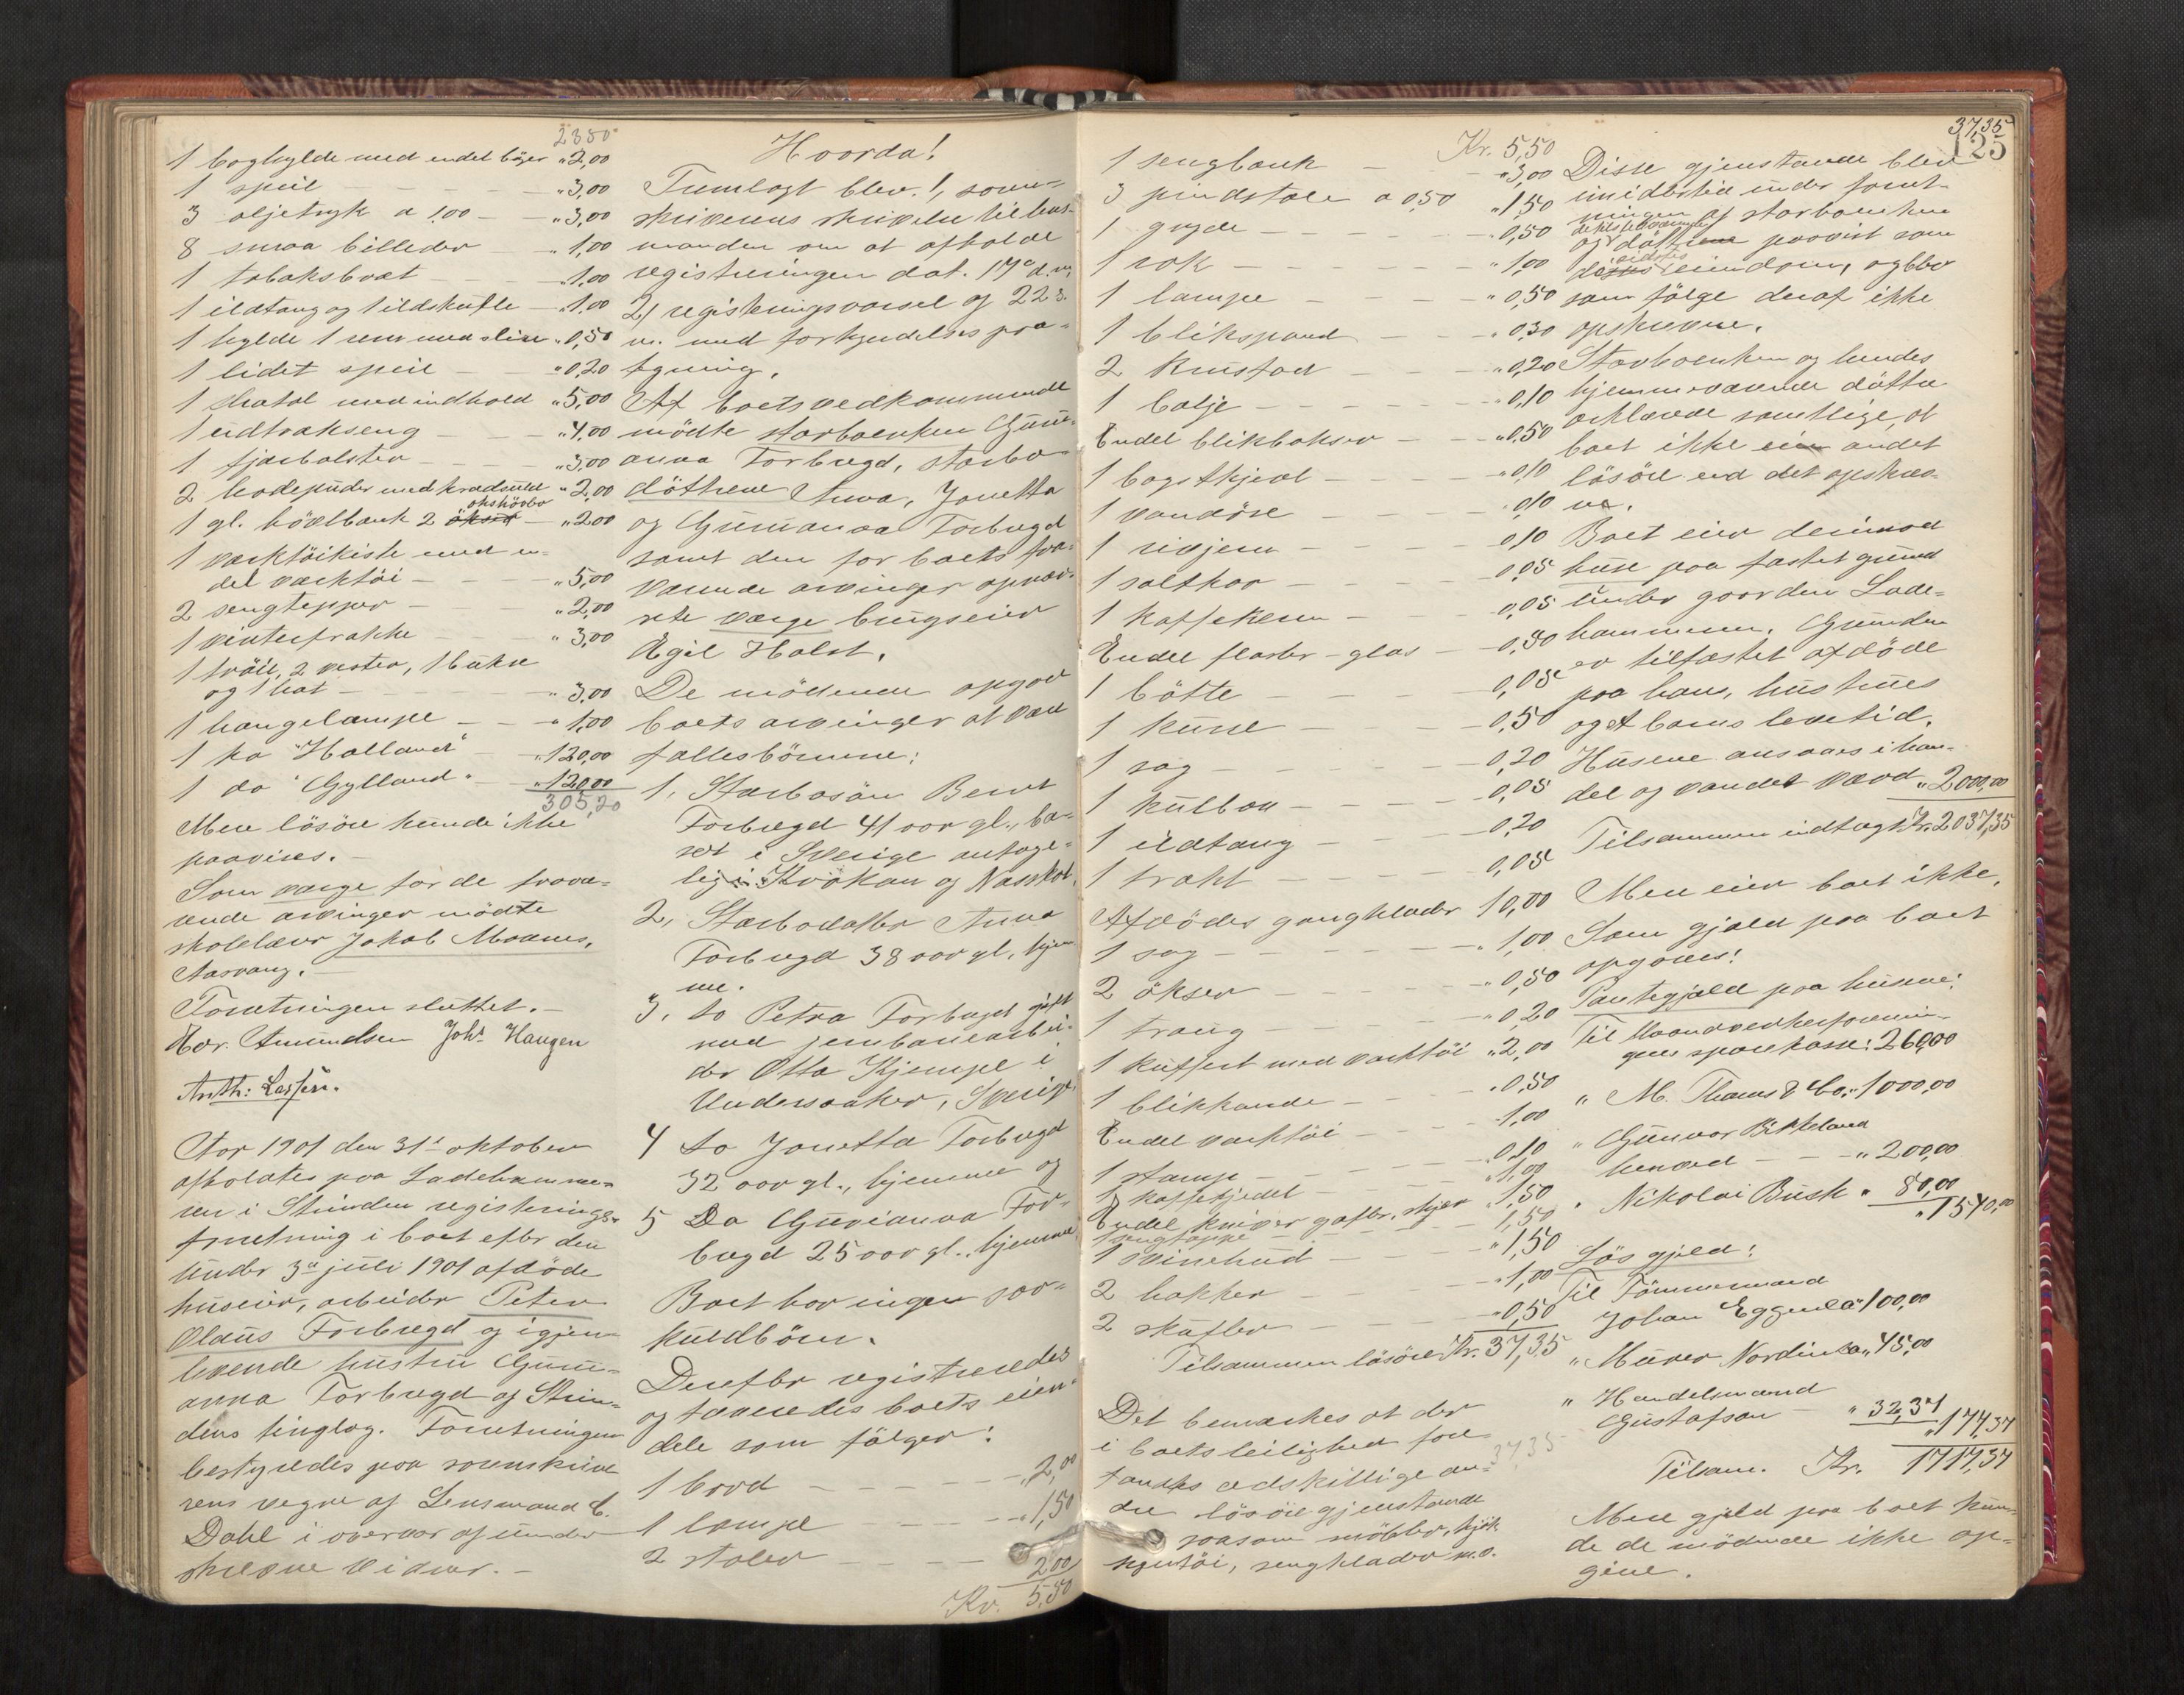 2350
1 boghylde med endel böger " 2,00
1 speil - - - - " 3,00
3 oljetryk a 1.00 - " 3,00
8 smaa billeder - " 1,00
1 tobaksbræt - - - " 1,00
1 ildtang og 1 ildskuffe - " 1,00
1 hylde 1 rem med slire " 0,50
1 lidet speil - - " 0,20
1 chatol med indhold " 5,00
1 udtrækseng - - " 4,00
1 fjærbolster - - - " 3,00
2 hodepuder med " 2,00
ökshövler
1 gl. hövlbænk 2 - " 2,00
1 værktöikiste med en-
del værktöi - - - " 5,00
2 sengtepper - " 2,00
1 vinterfrakke - - " 3,00
1 tröie, 2 vester, 1 bukse
og 1 hat - - - - " 3,00
1 hængelampe - - " 1,00
1 ko "Holland" - " 120,00
1 do "Gylland" - " 120,00
305,20
Mere lösöre kunde ikke
paavises.
Som værge for de fravæ-
rende arvinger mödte
skolelærer Jakob Moanes,
Aasvang. -
Forretningen sluttet. -
Edv. Amundsen Johs Haugen
Anth: Lassen.
Aar 1901 den 31te oktober
afholdtes paa Ladehamme-
ren i Strinden registrerings-
forretning i boet efter den
under 3de juli 1901 afdöde
huseier, arbeider Peter
Olaus Forbregd og igjen-
levende hustru Gunn-
anna Forbregd af Strin-
dens tinglag. Forretningen
bestyredes paa sorenskrive-
rens vegne af Lensmand C.
Dahl i overvær af under-
skrevne vidner. -
Hvorda!
Fremlagt blev: 1, soren-
skriverens skrivelse til lens-
manden om at afholde
registreringen dat. 17de d.m.
2, registreringsvarsel af 22 s.
m. med forkyndelsespaa-
tegning.
Af boets vedkommende
mödte starboenken Gunn-
anna Forbregd, starbo-
döttrene Anna, Jonetta
og Gunianna Forbregd
samt den for boets fra-
værende arvinger opnæv-
nte værge brugseier
Egil Holst.
De mödende opgav
boets arvinger at være
fællesbörnene:
1, Starbosön Bernt
Forbregd 41 aar gl., bo-
sat i Sverige antage-
lig i Strökan og Nasskot.
2, Starbodatter Anna
Forbregd 38 aar gl., hjem-
me.
3, do Petra Forbregd gift
med jernbanearbei-
der Otto Kjempe i
Undersaaker, Sverige.
4 do Jonetta Forbregd
32 aar gl., hjemme og
5 Do Gunianna For-
bregd 25 aar gl., hjemme.
Boet har ingen sær-
kuldbörn.
Derefter registreredes
og taxeredes boets eien-
dele som fölger:
1 bord - - - - 2,00
1 lampe - - - - " 1,50
2 stoler - - - 2,00
Kr. 5,50
Kr. 5,50
1 sengbænk - - - " 3,00
3 pindstole a 0,50 " 1,50
1 gryde - - - - - " 0,50
1 rok - - - - " 1,00
1 lampe - - - " 0,50
1 blikspand - - " 0,30
2 krusfad - - - " 0,20
1 balje - - - - " 0,10
Endel blikbokser - - " 0,50
1 bagstfjæl - - - " 0,10
1 vandöse - - - " 0,10
1 rivjern - - - 0,10
1 saltkar - - - 0,05
1 kaffekvern - - - 0,05
Endel flasker - glas - 0,30
1 bötte - - - - 0,05
1 kurv - - - - 0,50
1 sag - - - - 0,20
1 kulbox - - - 0,05
1 ildtang - - - 0,20
1 trakt - - - - 0,05
Afdödes gangklæder 10,00
1 sag - - - - " 1,00
2 ökser - - - " 0,50
1 traug - - - " 0,20
1 kuffert med værktöi " 2,00
1 blikkande - - - " 0,50
Endel værktöi - - - 1,00
1 stamp - - - - 0,10
1 kaffekjedel - - - " 1,00
Endel kniver gafler, skjeer 1,50
1 sengteppe - - - 1,50
1 vinehud - - - " 1,50
2 hakker - - - - " 1,00
2 skufler - - - " 0,50
Tilsammen lösöre Kr. 37,35
Det bemærkes at der
i boets leilighed fore-
37,35
fandtes adskillige an-
dre lösöregjenstande
saasom möbler, kjök-
kentöi, sengklæder m.v.
37,35
125
Disse gjenstande blev
imidlertid under forret-
ningen af starboenken
og döttrene paavist som
eiendom, og blev
som fölge deraf ikke
opskrevne.
Starboenken og hendes
hjemmeværende döttre
erklærede samtlige, at
boet ikke eier andet
lösöre end det opskrev-
ne.
Boet eier derimod
huse paa fæstet grund
under gaarden Lade-
hammeren. Grunden
er tilfæstet afdöde
paa hans, hustrues
og et barns levetid.
Husene ansaaes i han-
del og vandel værd " 2000,00
Tilsammen indtægt Kr. 2037,35
Mere eier boet ikke.
Som gjæld paa boet
opgaves:
Pantegjæld paa husene:
Til Haandverkerforenin-
gens sparekasse: 260,00
" M. Thams & Co: " 1000,00
" Gunnar Bikkeland
henved - - " 200,00
" Nikolai Busk " 80,00
" 1540,00
Lös gjæld:
Til Tömmermand
Johan Eggen 100,00
" Murer Nordin " 45,00
" Handelsmand
Gustafson - " 32,37 " 177,37
Tilsam. Kr. 1717,37
Mere gjæld paa boet kun-
de de mödende ikke op-
give.